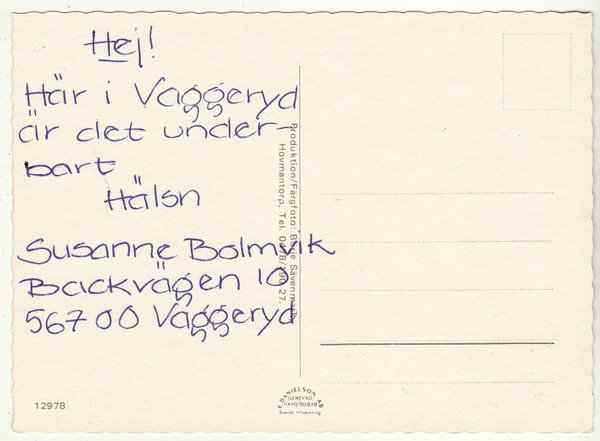 Hej!
Här i Vaggeryd
är det under-
bart
Hälsn
Susanne Bolmvik
Backvägen 10
56700 Vaggeryd
Produktion/Färgfoto:
Hovmantorp. Tel.
12978
E. DANIELSON AB
GENEVAD
0430/70218
Svensk tillverkning